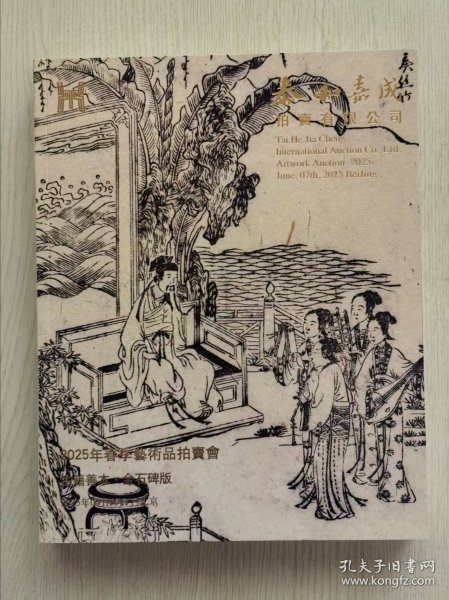 奏丝竹
泰和嘉成
拍賣有限公司
Tai He Jia Cheng
International Auction Co., Ltd.
Artwork Auction-2025s
June, 07th, 2025 Beijing
2025年春季藝術品拍賣會
古籍善本 金石碑版
孔夫子旧书网
www.kongfz.com